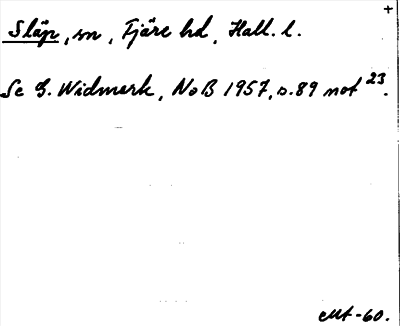 +
Släp, sn, Fjäre hd, Hall. l.
Se G. Widmark, NoB 1957, s. 89 not 23.
-60.